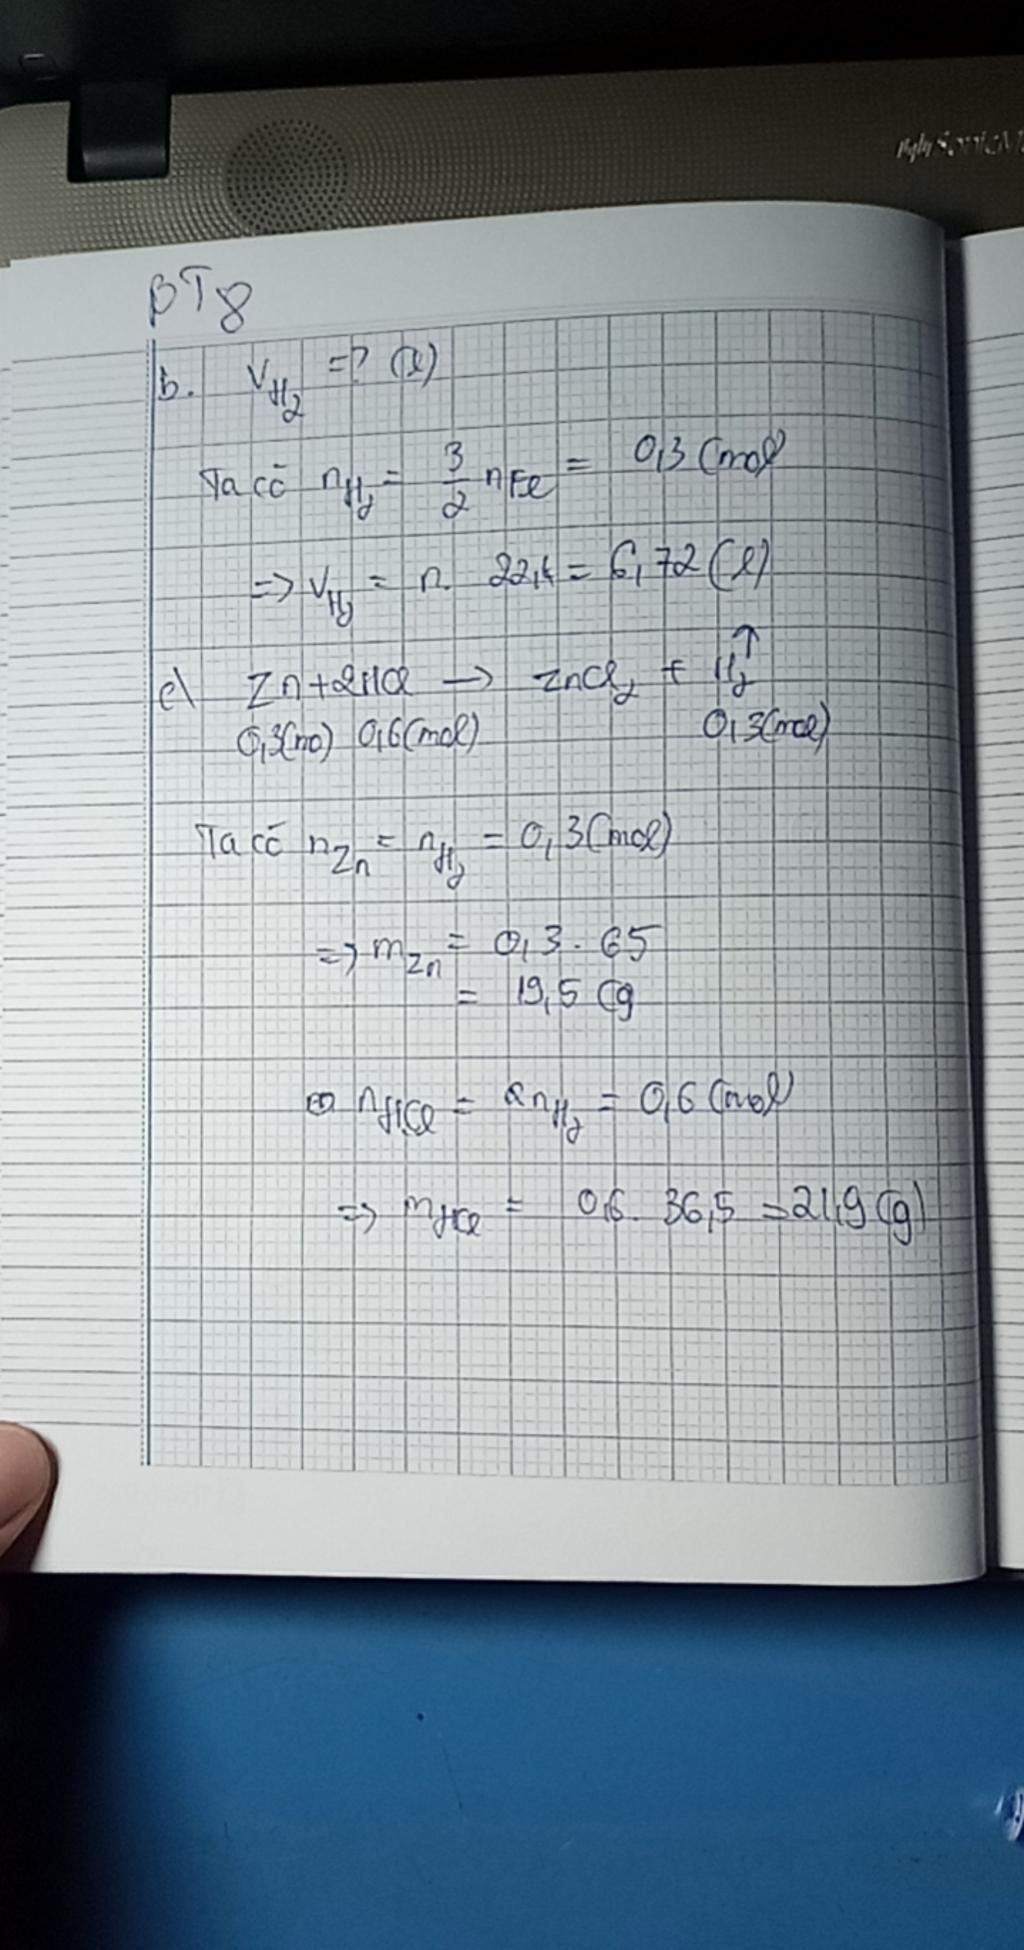 BT8
b. V_H2 = ? (l)
Ta có n_H2 = 3/2 n_Fe = 0,3 (mol
=> V_H2 = n. 22,4 = 6,72 (l)
c) Zn + 2HCl → ZnCl2 + H2 ↑
0,3(mo) 0,6(mol) 0,3(mol)
Ta có n_Zn = n_H2 = 0,3(mol)
=> m_Zn = 0,3 . 65
= 19,5 (g
n_HCl = 2n_H2 = 0,6 (mol)
=> m_HCl = 0,6. 36,5 = 21,9 (g)